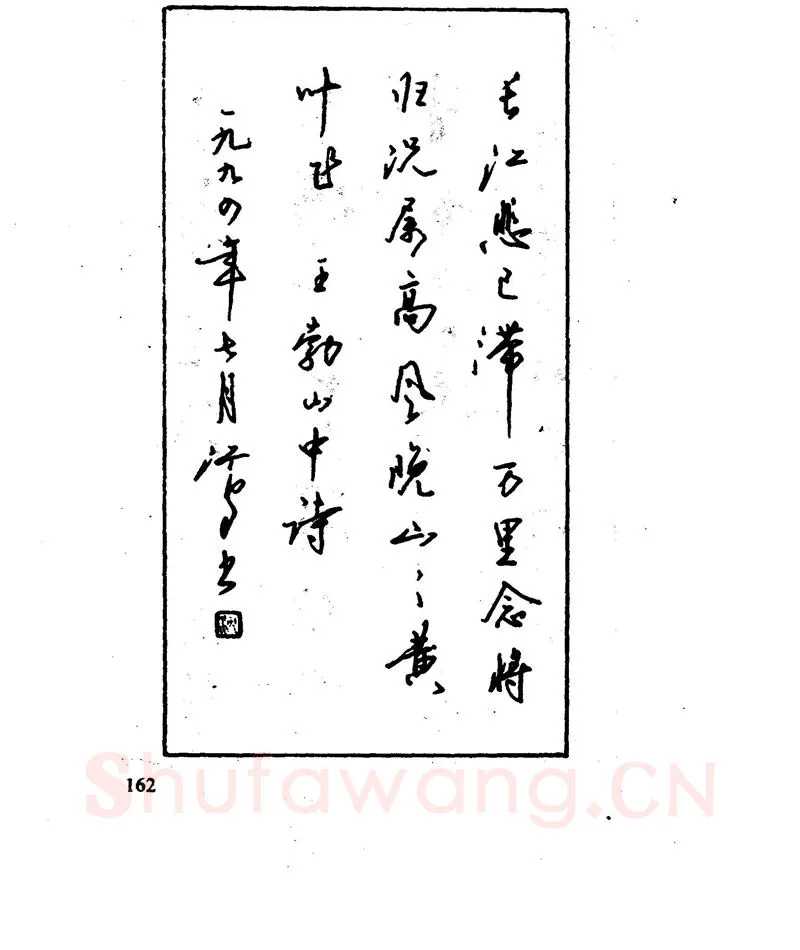 长江悲已滞万里念将
归况属高风晚山〻黄
叶飞 王勃山中诗
一九九四年七月 书
162
Shufawang.CN